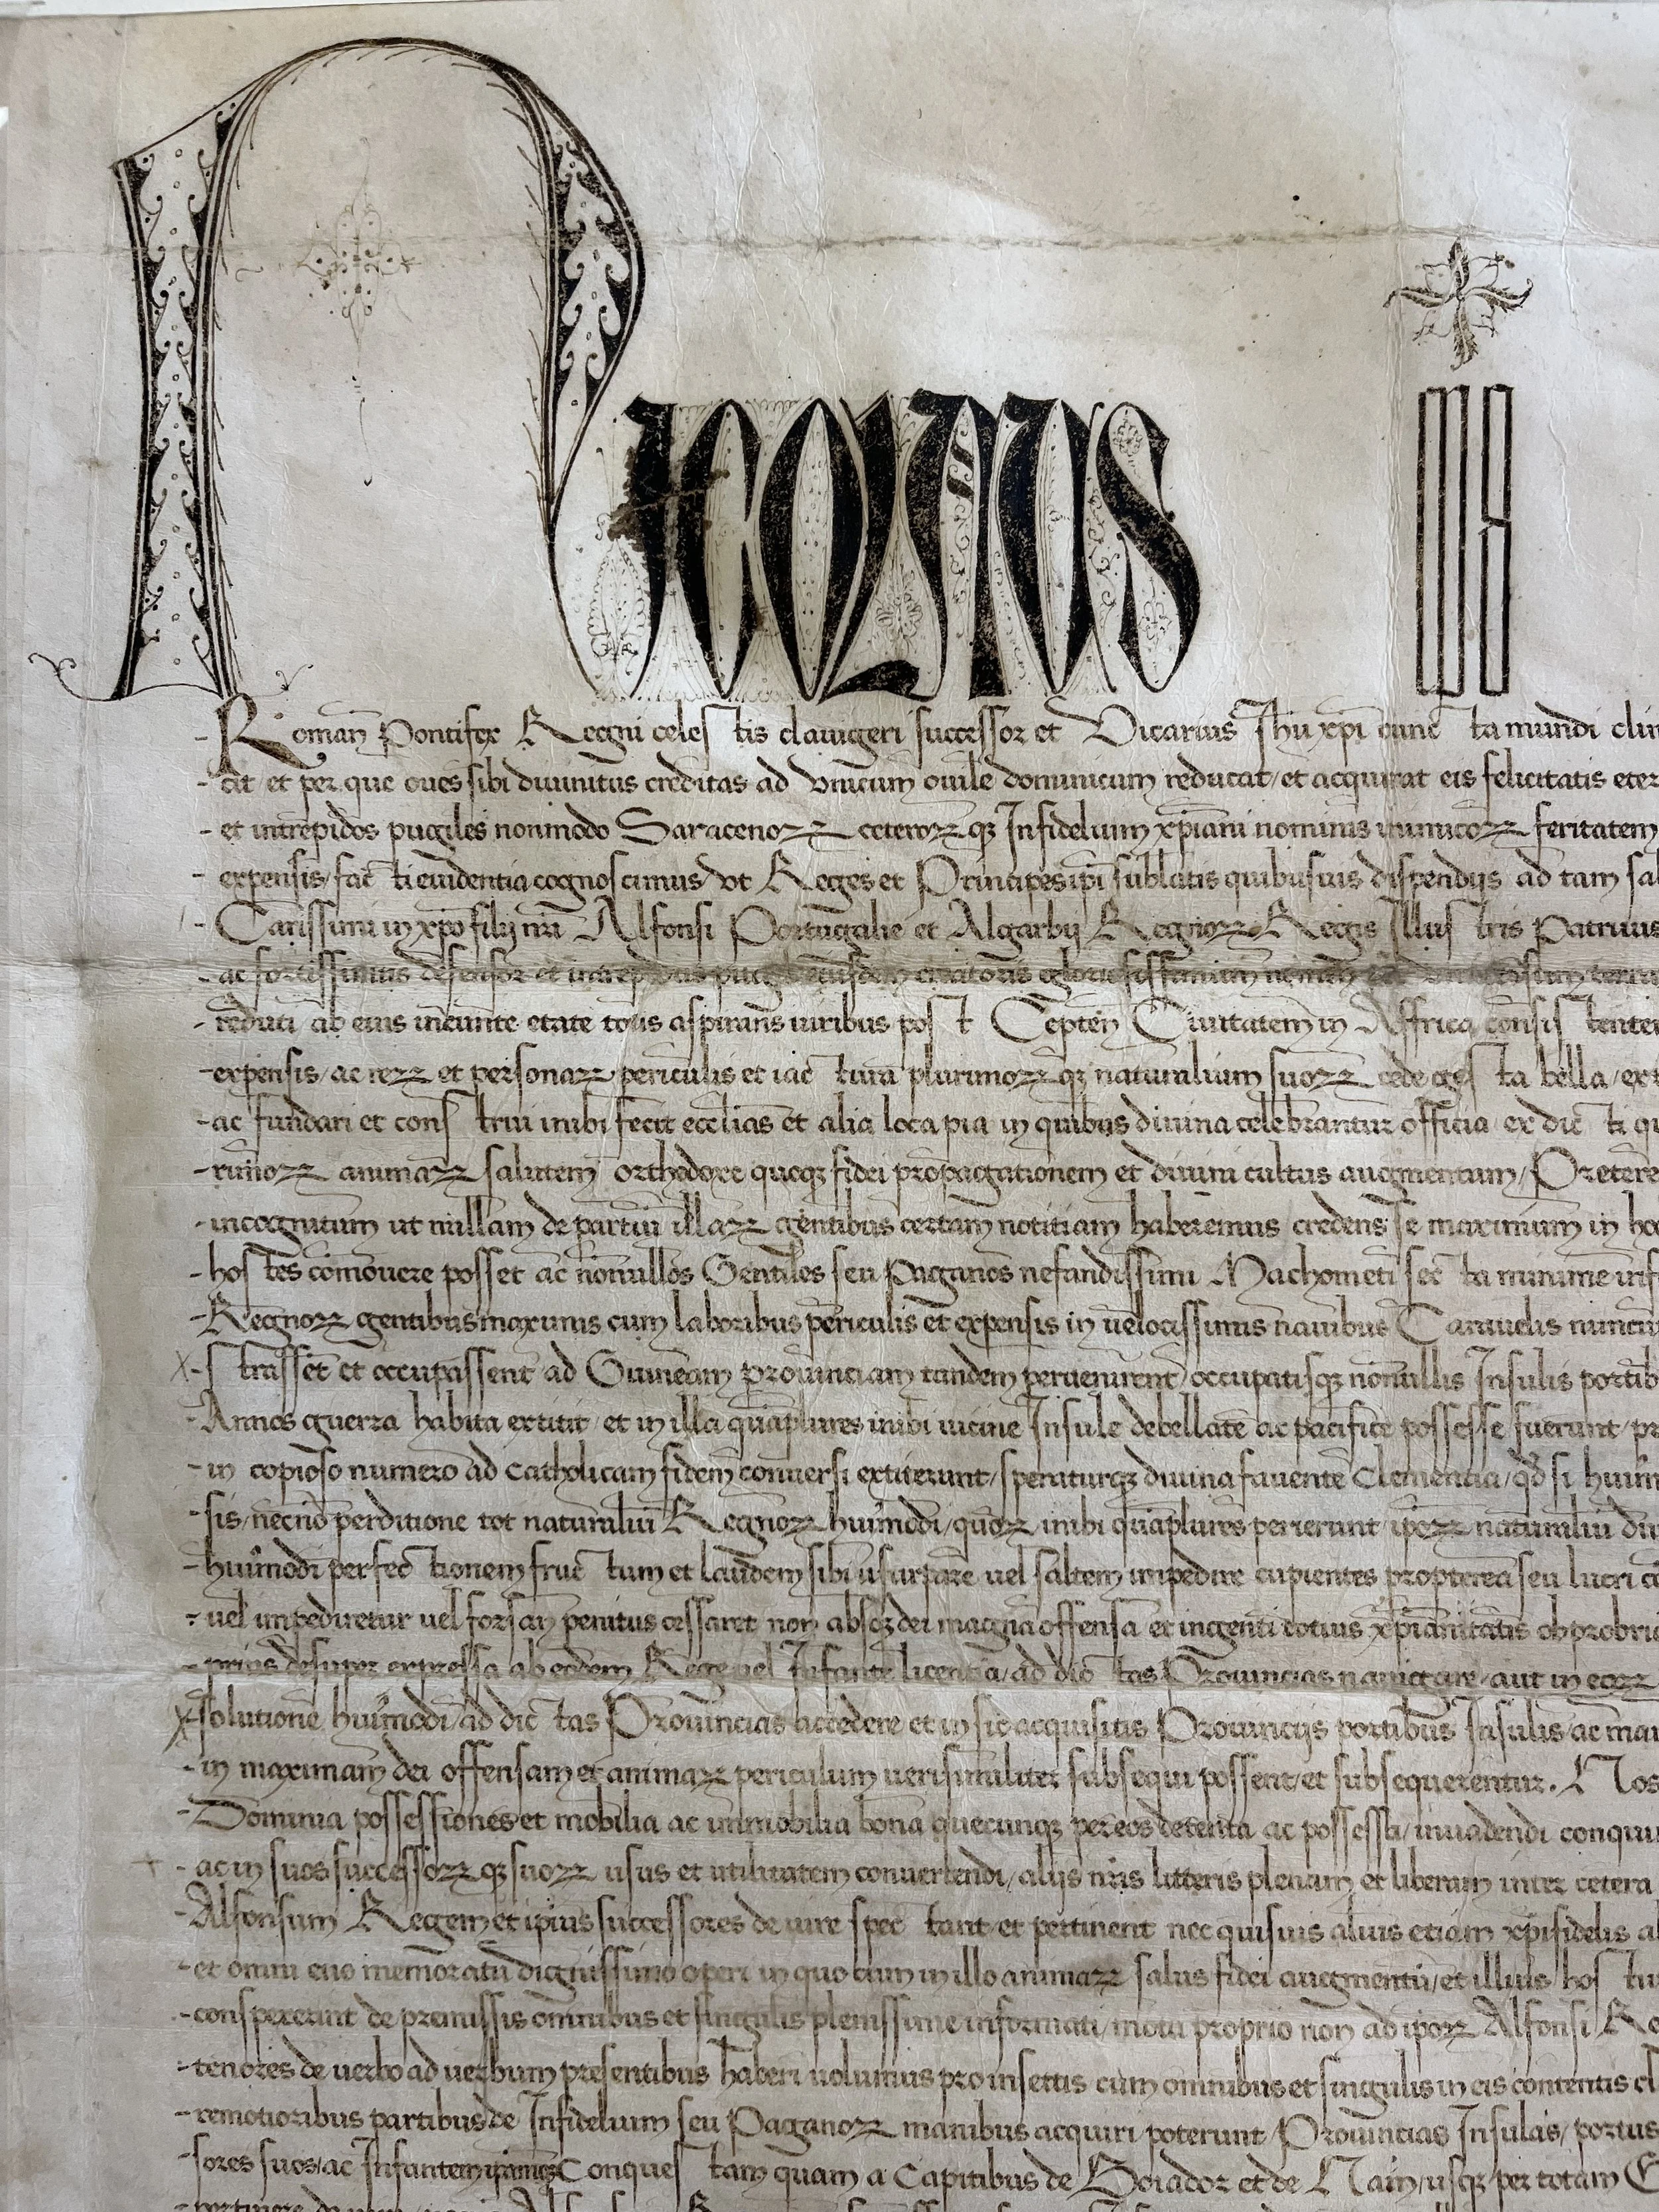 Nicolaus
Roman Pontifex Regni celestis clavigeri successor et Vicarius Jhu xpi cunc ta mundi
cit et per que oves sibi divinitus creditas ad vnicum ovile dominicum reducat / et acquirat eis felicitatis
et intrepidos pugiles nonmodo Saracenorz ceterorz qz Infidelium xpiani nominis inimicorz feritatem
expensis / fac ti evidentia cognoscimus / vt Reges et Principes ipi sublatis quibusuis dispendijs ad tam
Carissimi in xpo filij nri Alfonsi Portugalie et Algarbij Regnorz Regis Illus tris Patruus
ac fortissimus defensor et intrepidus pugil eiusdem creatoris gloriosissimum nomen
reduci ab eius ineunte etate totis aspirans viribus pos t Cepten Ciuitatem in Affrica consis
expensis / ac rerz et personarz periculis et iac tura plurimorz qz naturalium suorz cede ges ta bella /
ac fundari et cons trui inibi fecit ecclias et alia loca pia in quibus divina celebrantur officia ex dic ti
animarz salutem orthodoxe quoqz fidei propagationem et divini cultus augmentum /
incognitum ut nullam de partiu illarz gentibus certam notitiam haberemus credens se maximum in
hos tes comouere posset ac nonnullos Gentiles seu Paganos nefandissimi Machometi sec ta minime
Regnorz gentibus maximis cum laboribus periculis et expensis in velocissimis nauibus Carauelis nuncupatis
s trasset et occupassent ad Guineam provinciam tandem peruenirent occupatisqz nonnullis Insulis
Annos guerra habita extitit / et in illa quaplures inibi vicine Insule debellate ac pacifice possesse fuerunt /
in copioso numero ad catholicam fidem conuersi extiterunt / speraturqz divina fauente Clementia / qd si
sis / necno perditione tot naturaliu Regnorz huiusmodi / quorz inibi quaplures perierunt / iporz naturaliu
huiusmodi perfec tionem fruc tum et laudem sibi usurpare vel saltem impedire cupientes propterea seu lucri
vel impediretur vel forsan penitus cessaret non absqz dei magna offensa et ingenti totius xpianitatis
prius desuper expressa ab eodem Rege vel Infante licentia / ad dic tas Prouincias nauigare / aut in
solutione huiusmodi ad dic tas Prouincias accedere et in sic acquisitis Prouincijs portibus Insulis / ac
in maximam dei offensam et animarz periculum verisimiliter subsequi possent / et subsequerentur. Nos
Dominia possessiones et mobilia ac immobilia bona quecunqz per eos detenta ac possessa / inuadendi
ac in suos successorz qz suorz usus et utilitatem conuertendi / alijs nris litteris plenam et liberam inter cetera
Alfonsum Regem et ipius successores de iure spec tant et pertinent nec quisuis alius etiam xpifidelis
et omni euo memoratu dignissimo operi in quo cum in illo animarz salus fidei augmentu / et illius hos
conspexerunt de premissis omnibus et singulis plenissime informati / motu proprio non ad iporz Alfonsi
tenores de verbo ad verbum presentibus haberi volumus pro insertis cum omnibus et singulis in eis contentis
remotioribus partibus de Infidelium seu Paganorz manibus acquiri poterunt / Prouincias Insulas / portus
sores suos / ac Infantem Conques tam quam a Capitibus de Boiador et de Nam / usqz per totam